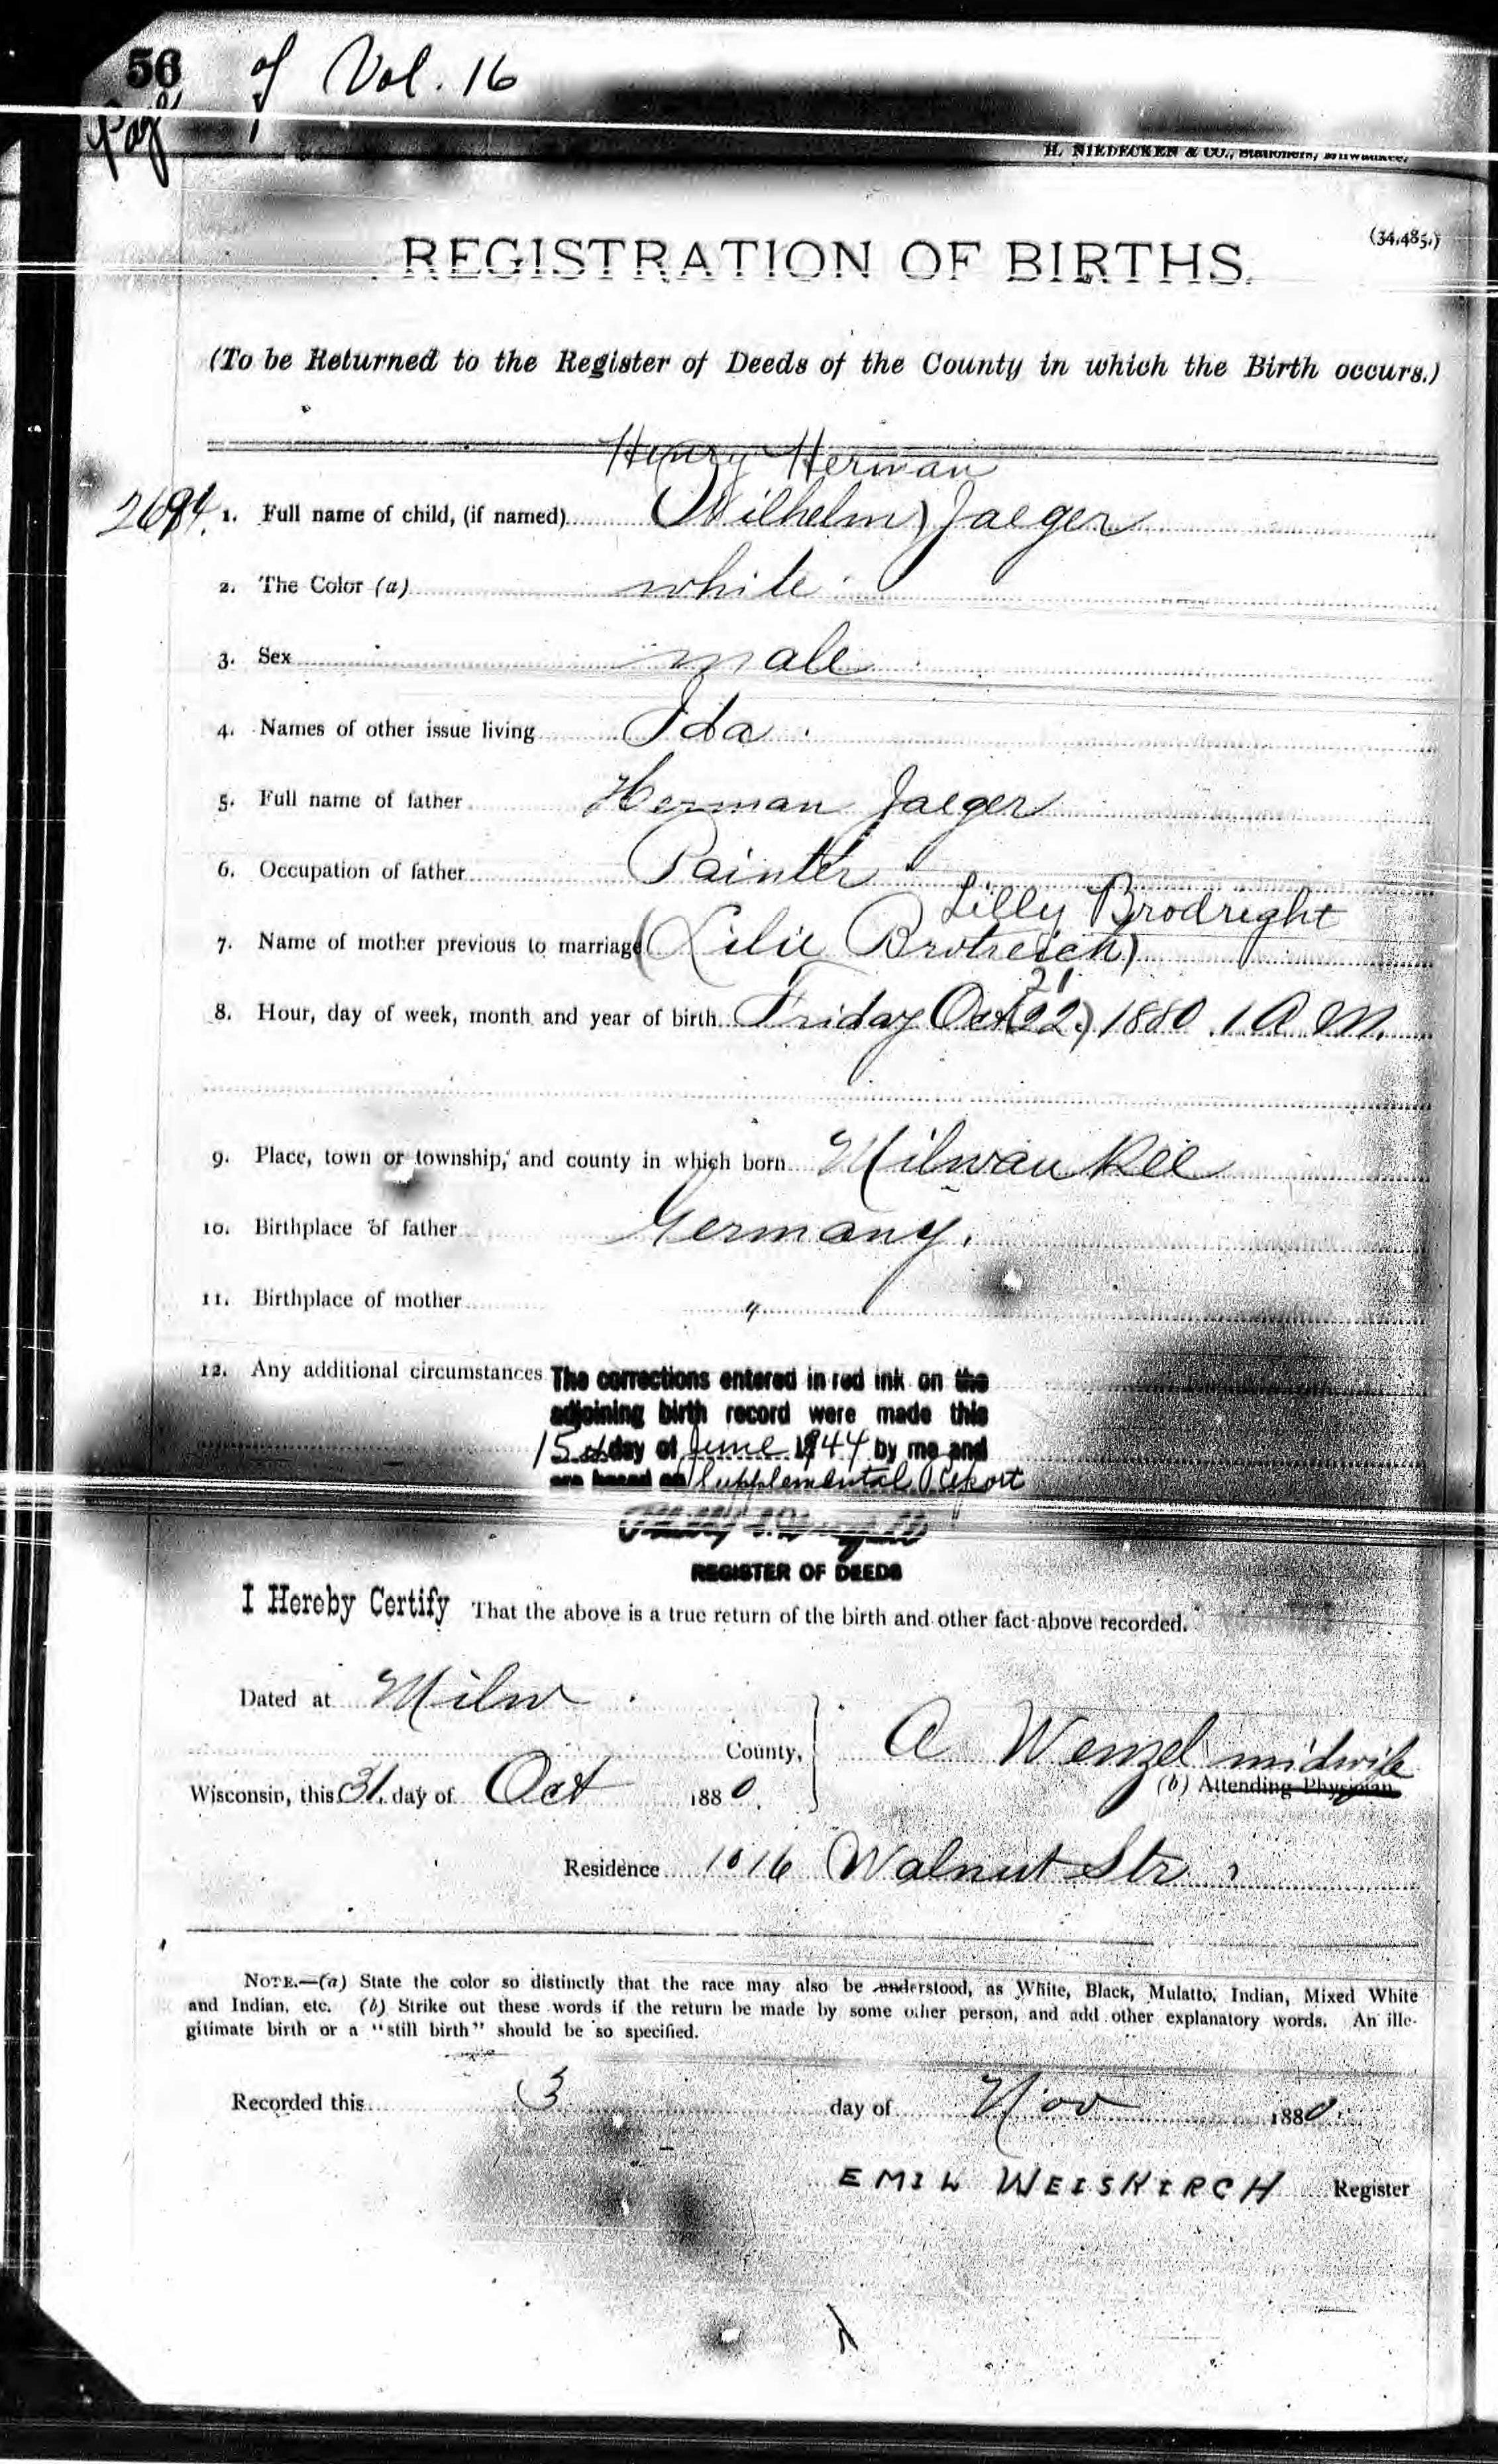 56 of Vol. 16
Page
H. NIEDECKEN & CO., Stationers, Milwaukee.
(34,485.)
REGISTRATION OF BIRTHS.
(To be Returned to the Register of Deeds of the County in which the Birth occurs.)
Henry Herman
2694. 1. Full name of child, (if named) (Wilhelm) Jaeger
2. The Color (a) white
3. Sex male
4. Names of other issue living Ida
5. Full name of father Herman Jaeger
6. Occupation of father Painter
Lilly Brodright
7. Name of mother previous to marriage (Lilie Brotreich)
21
8. Hour, day of week, month and year of birth Friday Oct (22) 1880 1 A M.
9. Place, town or township, and county in which born Milwaukee
10. Birthplace of father Germany.
11. Birthplace of mother "
12. Any additional circumstances The corrections entered in red ink on the
adjoining birth record were made this
15th day of June 1944 by me and
are based on Supplemental Report
REGISTER OF DEEDS
I Hereby Certify That the above is a true return of the birth and other fact above recorded.
Dated at Milw
County, A Wenzel midwife
(b) Attending Physician
Wisconsin, this 31. day of Oct 1880.
Residence 1016 Walnut Str
NOTE.—(a) State the color so distinctly that the race may also be understood, as White, Black, Mulatto, Indian, Mixed White
and Indian, etc. (b) Strike out these words if the return be made by some other person, and add other explanatory words. An ille-
gitimate birth or a "still birth" should be so specified.
Recorded this 3 day of Nov 1880.
EMIL WEISKIRCH Register